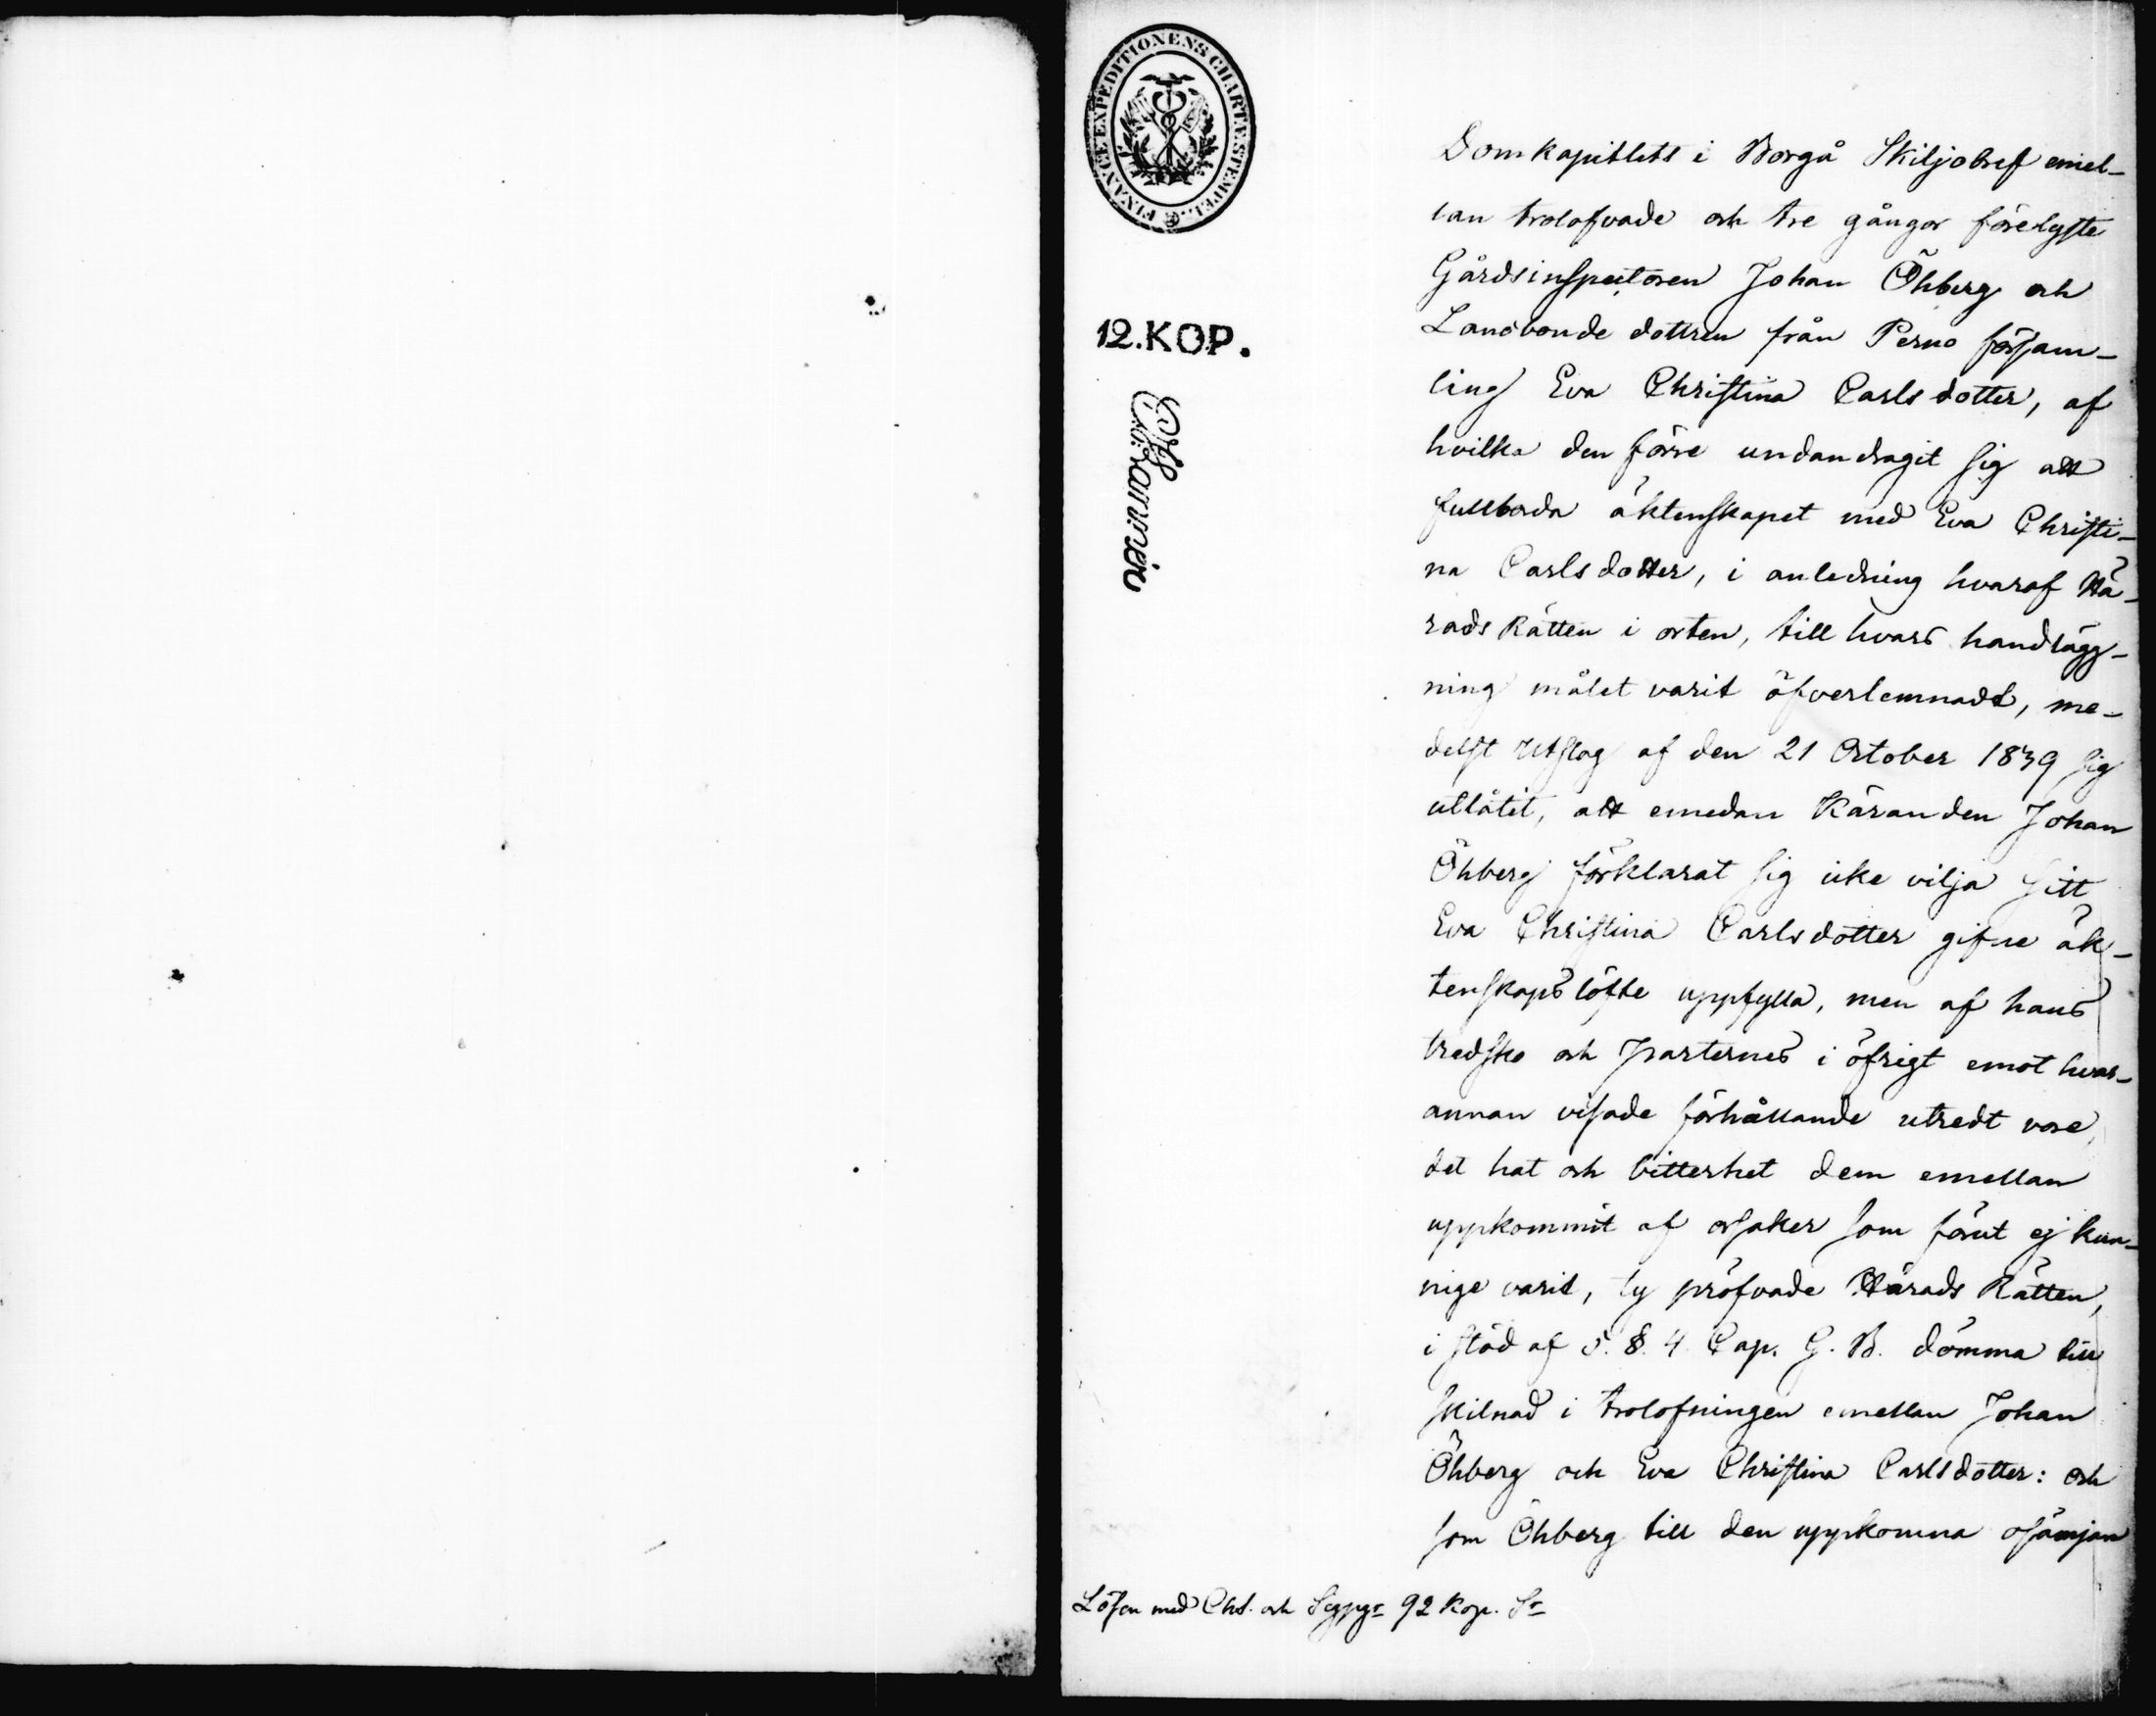 FINANCE EXPEDITIONENS CHARTÆ STEMPEL.
12. KOP.
Domkapitlets i Borgå Skiljobref emel-
lan trolofvade och tre gångor förelyste
Gårdsinspectoren Johan Öhberg och
Landbonde dottren från Perno försam-
ling Eva Christina Carlsdotter, af
hvilka den förre undandragit sig att
fullborda äktenskapet med Eva Christi-
na Carlsdotter, i anledning hvaraf Hä-
rads Rätten i orten, till hvars handlägg-
ning målet varit öfverlemnadt, me-
delst Utslag af den 21 October 1839 sig
utlåtit, att emedan Käranden Johan
Öhberg förklarat sig icke vilja sitt
Eva Christina Carlsdotter gifne äk-
tenskapslöfte uppfylla, men af hans
tredsko och Parternes i öfrigt emot hvar-
annan visade förhållande utredt vore,
det hat och bitterhet dem emellan
uppkommit af orsaker som förut ej kun-
nige varit, ty pröfvade Härads Rätten,
i stöd af 5. §. 4 Cap. G. B. dömma till
skilnad i trolofningen emellan Johan
Öhberg och Eva Christina Carlsdotter: och
som Öhberg till den uppkomna osämjan
Lösen med Cht. och 92 Kop. Sr